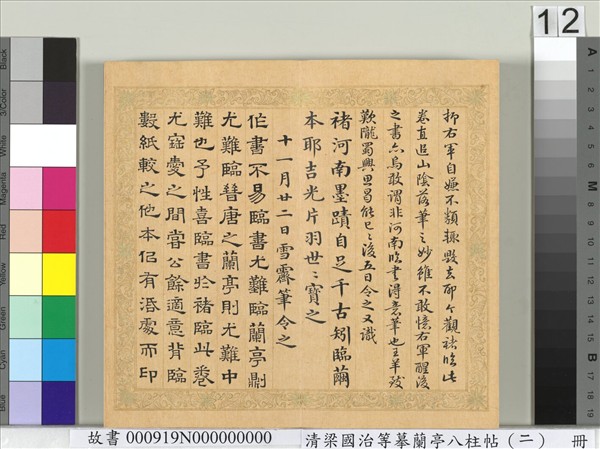 12
抑右軍自嫌不類輒毀去耶今觀褚臨此
卷直逼山陰落筆之妙雖不敢憶右軍醒後
之書亦烏敢謂非河南臨書得意筆也王羊跋
歎隴蜀興思曷能已已後五日令之又識
褚河南墨蹟自足千古矧臨蘭
本耶吉光片羽世世寶之
十一月廿二日雪霽筆令之
作書不易臨書尤難臨蘭亭則
尤難臨晉唐之蘭亭則尤難中
難也予性喜臨書於褚臨此卷
尤竊愛之閒嘗公餘適意背臨
數紙較之他本侶有濡處而印
故書 000919N000000000
清梁國治等摹蘭亭八柱帖(二) 冊
Black
3/Color
White
Magenta
Red
Yellow
Green
Cyan
Blue
A
1
2
3
4
5
6
M
8
9
10
11
12
13
14
15
B
17
18
19